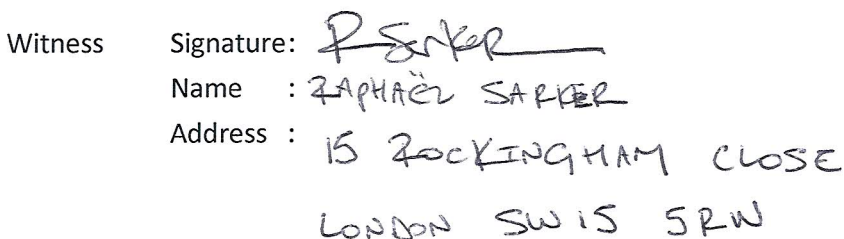 Witness Signature: R Sarker
Name : RAPHAËL SARKER
Address : 15 ROCKINGHAM CLOSE
LONDON SW15 5RW